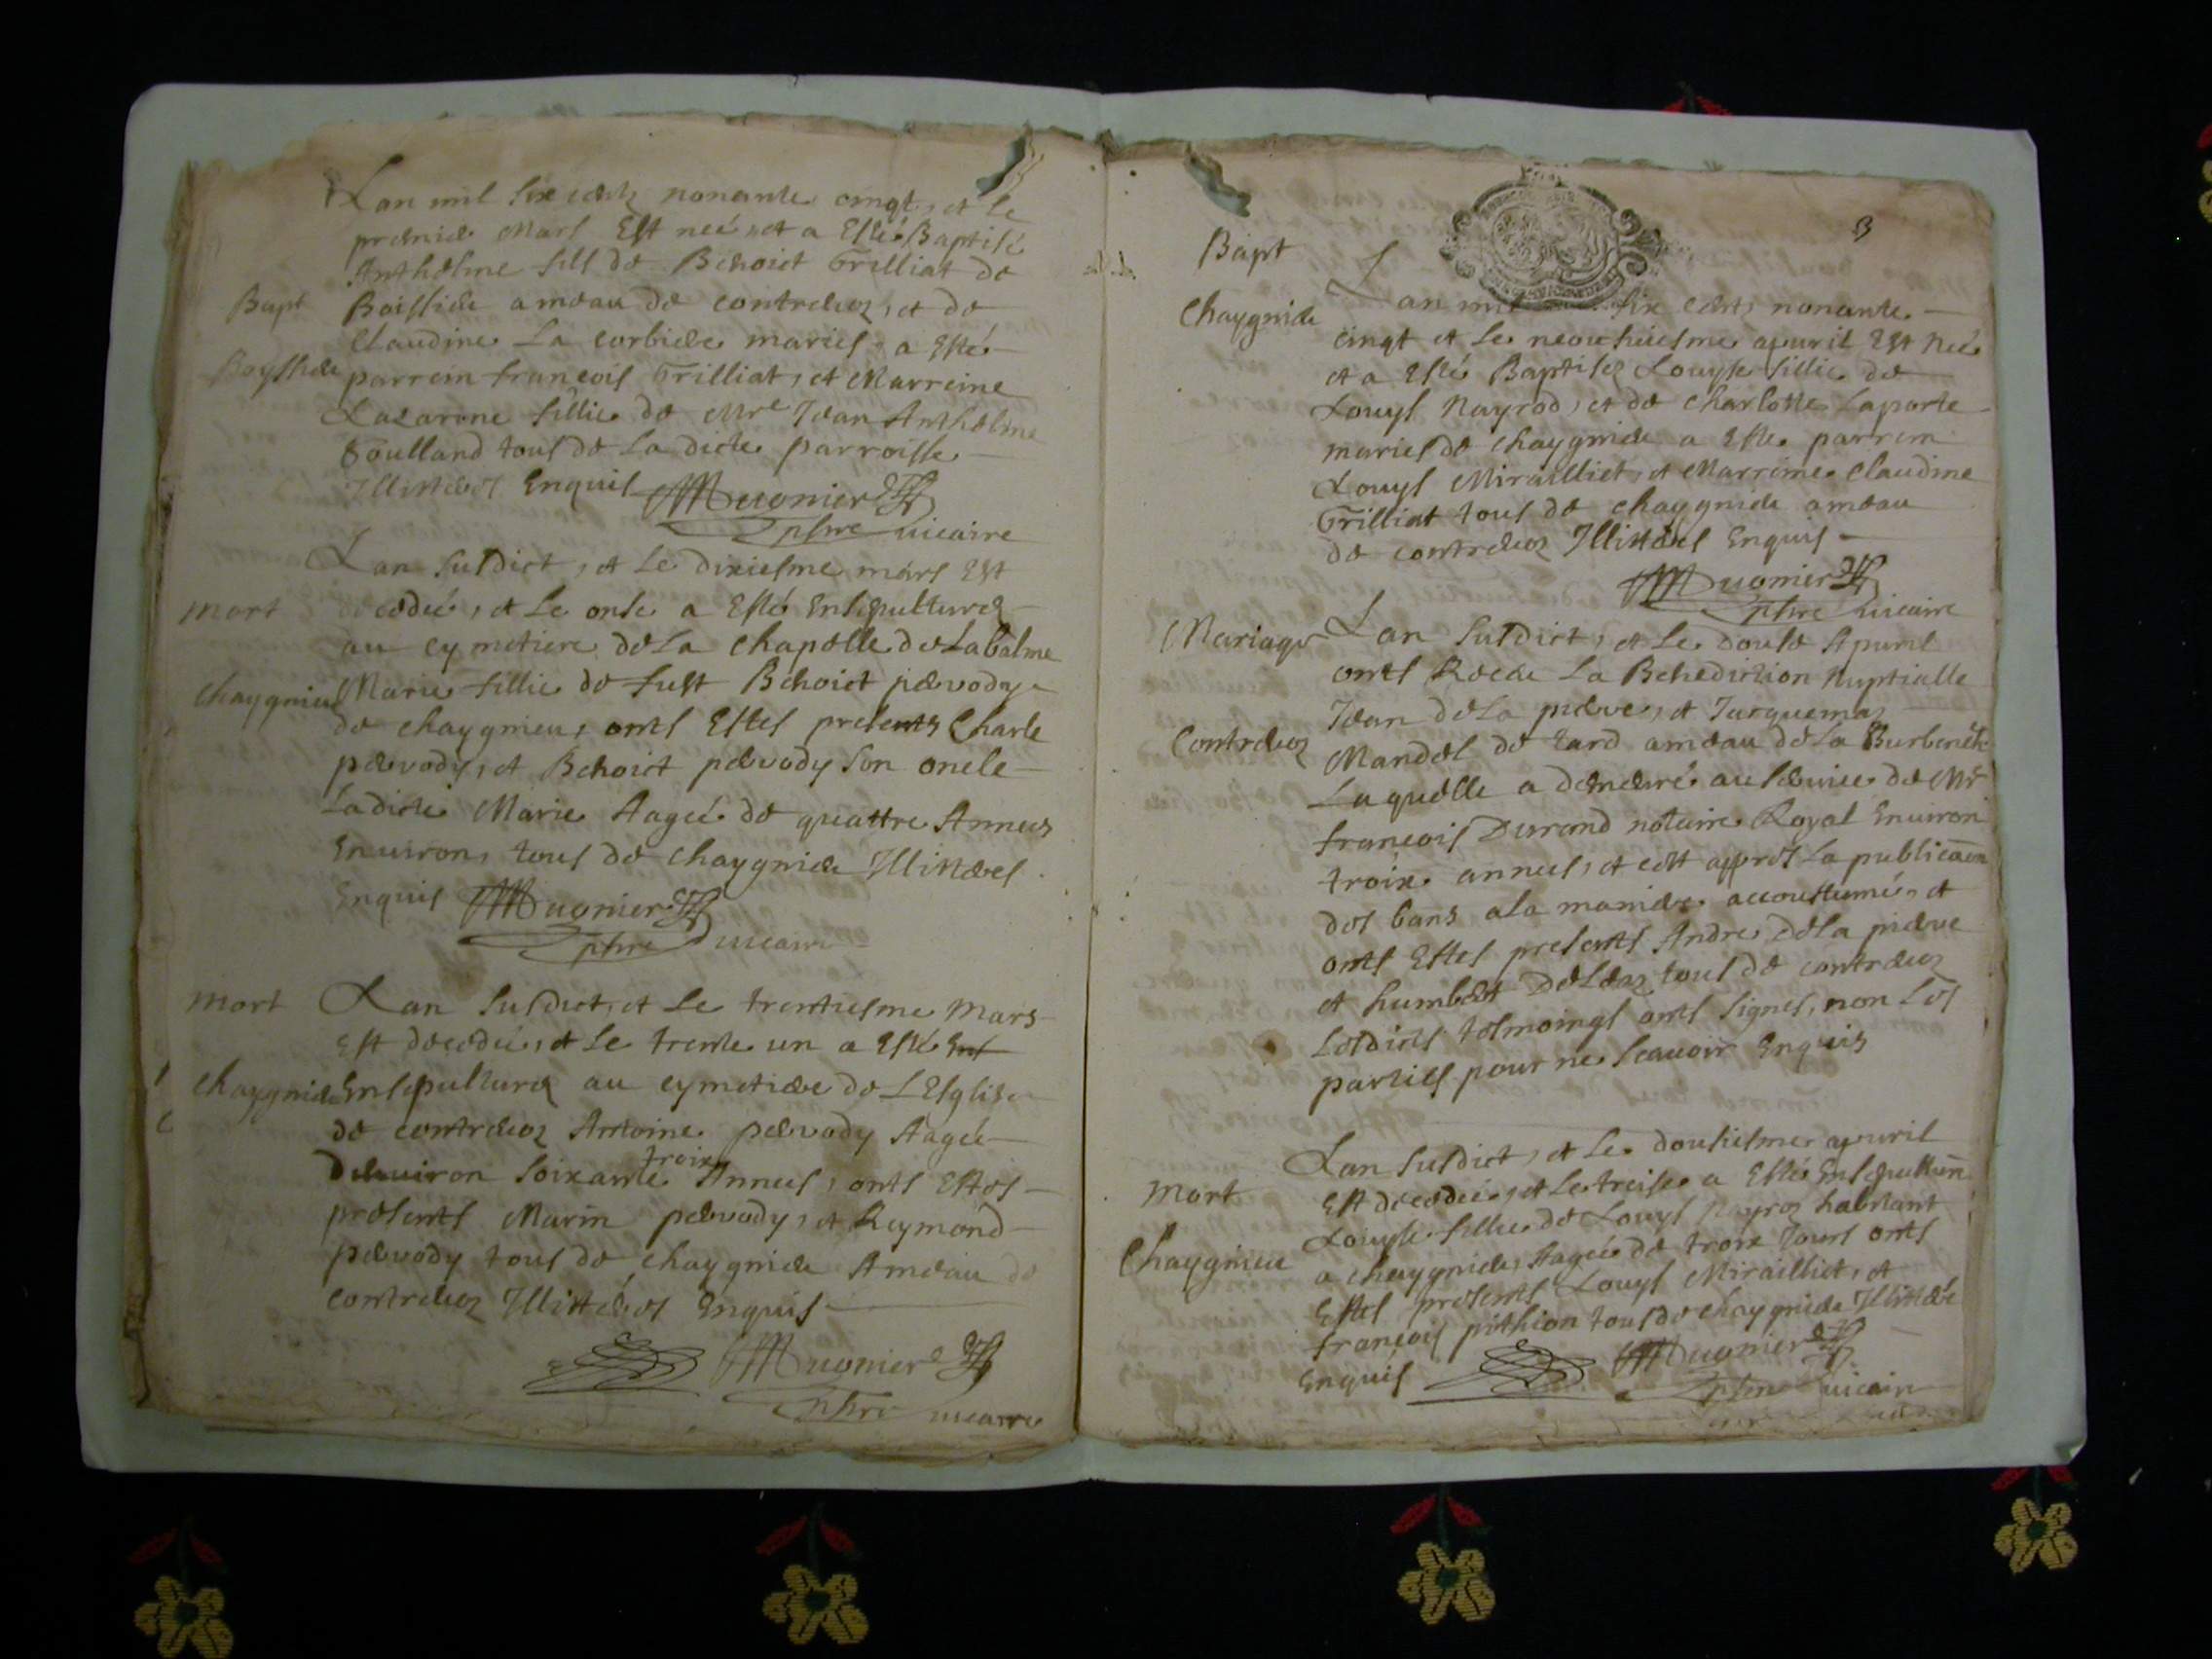 Lan mil six cents nonante cingt, et le
premier Mars Est neé et a Esté Baptisé
Anthelme fils de Benoict Trilliat de
Bapt
Boissieu ameau de contrevoz, et de
Claudine La corbiere maries a Esté
Boyssieu
parrein francois Trilliat, et Marreine
Lazarene fillie de Mre Jean Anthelme
Goulland tous de La dicte parroisse
Illitterés Enquis MMugnier
pbre vicaire
Lan Susdict, et Le dixiesme mars Est
mort
decedeé, et Le onse a Esté Ensepulturez
au cymetiere de La chapelle de Labalme
Chaygnieu
Marie fillie de fust Benoict pervody
de chaygnieu, onts Estes presents Charle
pervody, et Benoict pervody Son oncle
Ladicte Marie Aageé de quattre Anneez
Environ, tous de chaygnieu Illitteres
Enquis MMugnier
pbre vicaire
mort
Lan Susdict, et Le trentiesme Mars
Est decedeé, et Le trente un a Esté Ens
chaygnieu
Ensepulturez au cymetiere de LEsglise
de contrevoz Antoine pervody Aageé
troix
Denviron Soixante Annees, onts Estes
presents Marin pervody, et Reymond
pervody tous de chaygnieu Ameau de
contrevoz Illitterés Enquis
MMugnier
pbre vicaire
3
Bapt
Lan mil six cents nonante
Chaygnieu
cingt et Le neoufviesme apvril Est Neé
et a Esté Baptisez Louyse fillie de
Louys Nayrod, et de Charlotte Laporte
maries de chaygnieu a Este parrein
Louys Mirailliet, et Marreine Claudine
Trilliat tous de chaygnieu ameau
de contrevoz Illitteres Enquis
MMugnier
pbre vicaire
Mariage
Lan Susdict, et Le douse Apvril
onts Receu La Benediction Nuptialle
Jean deLa pierre, et Jacquemaz
Contrevoz
Mandel de tard ameau deLa Burbenche
Laquelle a demeuré au Service de Mre
francois Durand notaire Royal Environ
troix annees, et cest appres La publicaōn
des bans ala maniere accoustumé, et
onts Estes presents Andre deLa pierre
et humbert tous de contrevoz
Lesdicts tesmoings onts Signes, non Les
parties pour ne Scavoir Enquis
Lan Susdict, et Le dousiesme apvril
mort
Est decedeé, et Le treise a Esté Ensepulturez
Louyse fillie de Louys Nayroz habitant
Chaygnieu
a chaygnieu, Aageé de troix Jours onts
Estes presents Louys Mirailliet, et
françois pithion tous de chaygnieu Illitteré
Enquis MMugnier
pbre vicaire